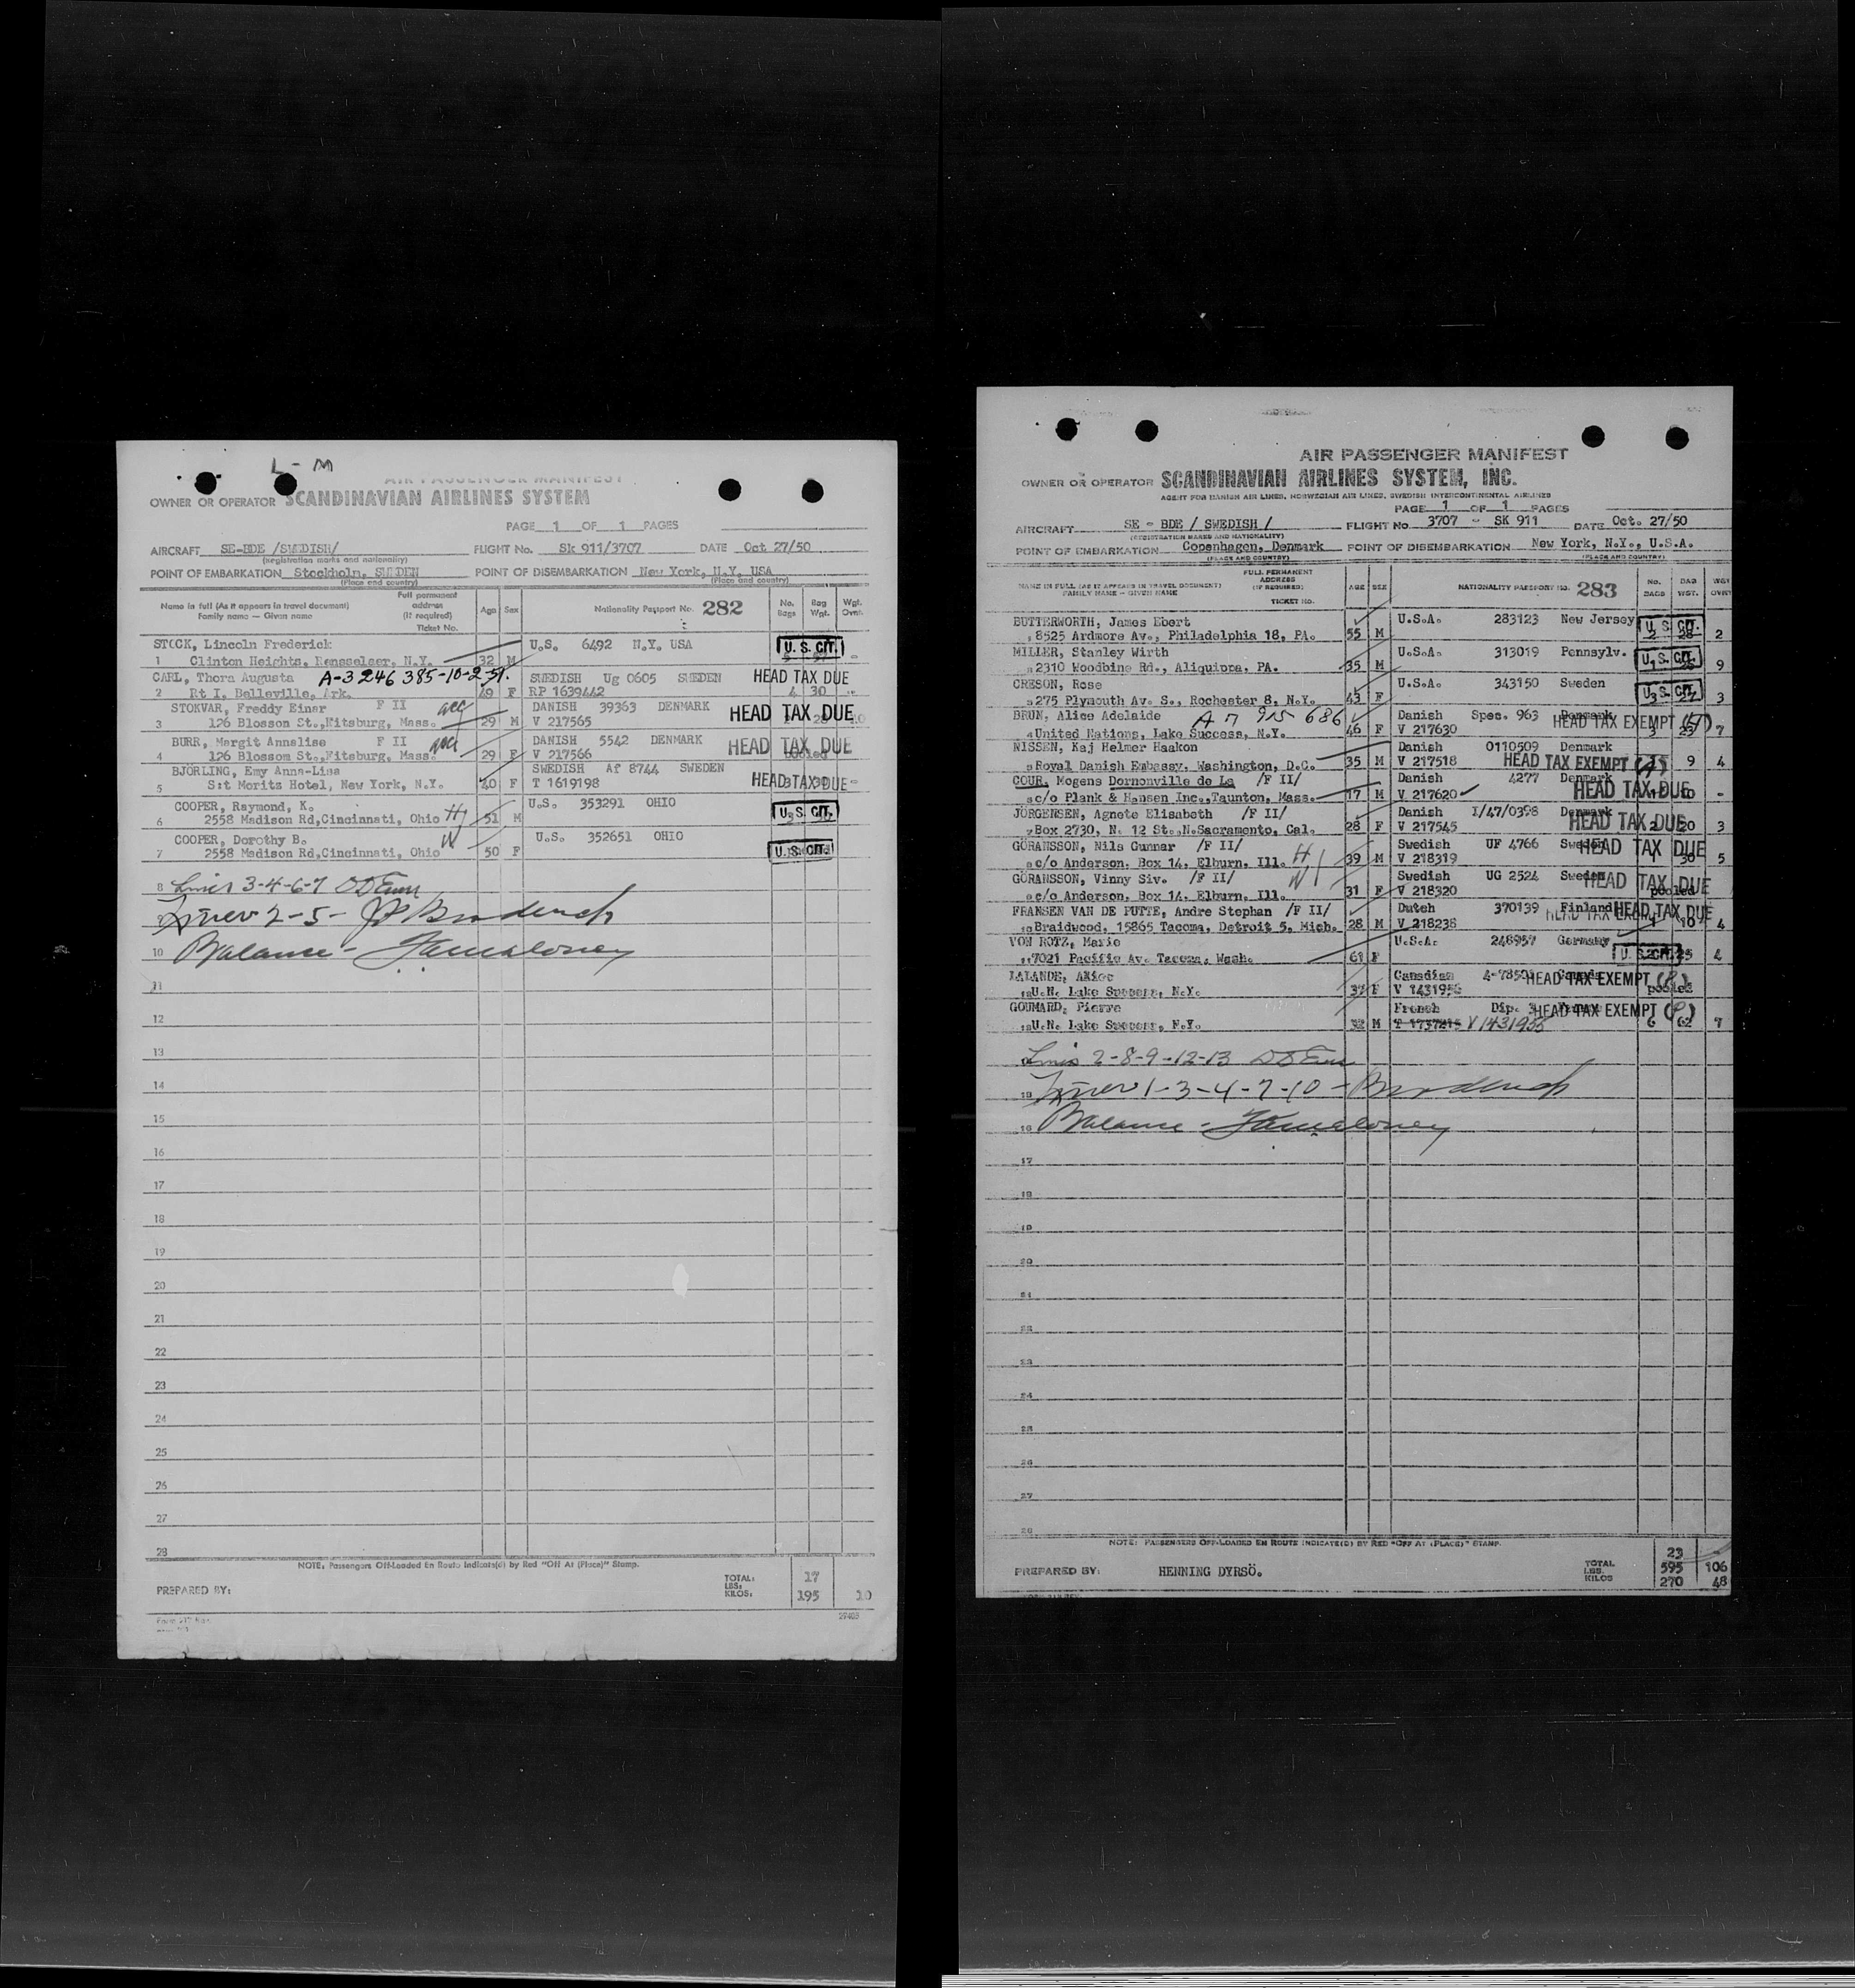 L- M
AIR PASSENGER MANIFEST
OWNER OR OPERATOR SCANDINAVIAN AIRLINES SYSTEM
PAGE 1 OF 1 PAGES
AIRCRAFT SE-BDE /SWEDISH/ FLIGHT No. Sk 911/3707 DATE Oct 27/50
(registration marks and nationality)
POINT OF EMBARKATION Stockholm, SWEDEN POINT OF DISEMBARKATION New York, N.Y. USA
(Place and country) (Place and country)
Name in full (As it appears in travel document) Family name — Given name Full permanent address (If required) Ticket No. Age Sex Nationality Passport No. 282 No. Bags Bag Wgt. Wgt. Over.
STOCK, Lincoln Frederick U.S. 6492 N.Y. USA U. S. CIT.
1 Clinton Heights, Rensselaer, N.Y. 32 M
CARL, Thora Augusta A-3 246 385-10-2-51. SWEDISH Ug 0605 SWEDEN HEAD TAX DUE
2 Rt I. Belleville, Ark. 49 F RP 1639442 4 30
STOKVAR, Freddy Einar F II acc DANISH 39363 DENMARK HEAD TAX DUE
3 126 Blosson St.,Fitsburg, Mass. 29 M V 217565 10
BURR, Margit Annelise F II acc DANISH 5542 DENMARK HEAD TAX DUE
4 126 Blossom St.,Fitsburg, Mass. 29 F V 217566 pooled
BJÖRLING, Emy Anna-Lisa SWEDISH Af 8744 SWEDEN
5 S:t Moritz Hotel, New York, N.Y. 40 F T 1619198 HEAD TAX DUE
COOPER, Raymond, K. H U.S. 353291 OHIO
6 2558 Madison Rd,Cincinnati, Ohio 51 M U. S. CIT.
COOPER, Dorothy B. W U.S. 352651 OHIO
7 2558 Madison Rd,Cincinnati, Ohio 50 F U. S. CIT.
8 Lines 3-4-6-7
9 2-5-
10 Balance -
11
12
13
14
15
16
17
18
19
20
21
22
23
24
25
26
27
28
NOTE: Passengers Off-Loaded En Route Indicate(d) by Red "Off At (Place)" Stamp.
PREPARED BY: TOTAL: 17
LBS:
KILOS: 195 10
27403
AIR PASSENGER MANIFEST
OWNER OR OPERATOR SCANDINAVIAN AIRLINES SYSTEM, INC.
AGENT FOR DANISH AIR LINES, NORWEGIAN AIR LINES, SWEDISH INTERCONTINENTAL AIRLINES
PAGE 1 OF 1 PAGES
AIRCRAFT SE - BDE / SWEDISH / FLIGHT No. 3707 - SK 911 DATE Oct. 27/50
(REGISTRATION MARKS AND NATIONALITY)
POINT OF EMBARKATION Copenhagen, Denmark POINT OF DISEMBARKATION New York, N.Y., U.S.A.
(PLACE AND COUNTRY) (PLACE AND COUNTRY)
NAME IN FULL (AS IT APPEARS IN TRAVEL DOCUMENT) FAMILY NAME — GIVEN NAME FULL PERMANENT ADDRESS (IF REQUIRED) TICKET NO. AGE SEX NATIONALITY PASSPORT NO. 283 NO. BAGS BAG WGT. WGT OVER
BUTTERWORTH, James Ebert U.S.A. 283123 New Jersey U. S. CIT.
1 8525 Ardmore Av., Philadelphia 18, PA. 55 M 2 28 2
MILLER, Stanley Wirth U.S.A. 313019 Pennsylv. U. S. CIT.
2 2310 Woodbine Rd., Aliquippa, PA. 35 M 9
CRESON, Rose U.S.A. 343150 Sweden U. S. CIT.
3 275 Plymouth Av. S., Rochester 8, N.Y. 43 F 3
BRUN, Alice Adelaide A 7 915 686 Danish Spec. 963 Denmark HEAD TAX EXEMPT
4 United Nations, Lake Success, N.Y. 46 F V 217630 3 23 7
NISSEN, Kaj Helmer Haakon Danish 0110509 Denmark
5 Royal Danish Embassy, Washington, D.C. 35 M V 217518 HEAD TAX EXEMPT 9 4
COUR, Mogens Dornonville de La /F II/ Danish 4277 Denmark
6 c/o Plank & Hansen Inc.,Taunton, Mass. 17 M V 217620 HEAD TAX DUE -
JÖRGENSEN, Agnete Elisabeth /F II/ Danish I/47/0398 Denmark
7 Box 2730, N. 12 St.,N.Sacramento, Cal. 28 F V 217545 HEAD TAX DUE 20 3
GÖRANSSON, Nils Gunnar /F II/ H Swedish UF 4766 Sweden HEAD TAX DUE
8 c/o Anderson, Box 14, Elburn, Ill. 39 M V 218319 30 5
GÖRANSSON, Vinny Siv. /F II/ W Swedish UG 2524 Sweden HEAD TAX DUE
9 c/o Anderson, Box 14, Elburn, Ill. 31 F V 218320 pooled
FRANSEN VAN DE PUTTE, Andre Stephan /F II/ Dutch 370139 Finland HEAD TAX DUE
10 Braidwood, 15865 Tacoma, Detroit 5, Mich. 28 M V 218238 4
VON ROTZ, Marie U.S.A. 248957 Germany
11 7021 Pacific Av. Tacoma, Wash. 61 F U. S. CIT. 25 4
LALANDE, Alice Canadian HEAD TAX EXEMPT (P)
12 U.N. Lake Success, N.Y. 37 F V 1431956 pooled
GOUMARD, Pierre French Dip. HEAD TAX EXEMPT (P)
13 U.N. Lake Success, N.Y. 32 M V1431955 6 62 7
Lines 2-8-9-12-13
1-3-4-7-10 -
16 Balance -
17
18
19
20
21
22
23
24
25
26
27
28
NOTE: PASSENGERS OFF-LOADED EN ROUTE INDICATE(D) BY RED "OFF AT (PLACE)" STAMP.
PREPARED BY: HENNING DYRSÖ. 23
TOTAL LBS. 595 106
KILOS 270 48